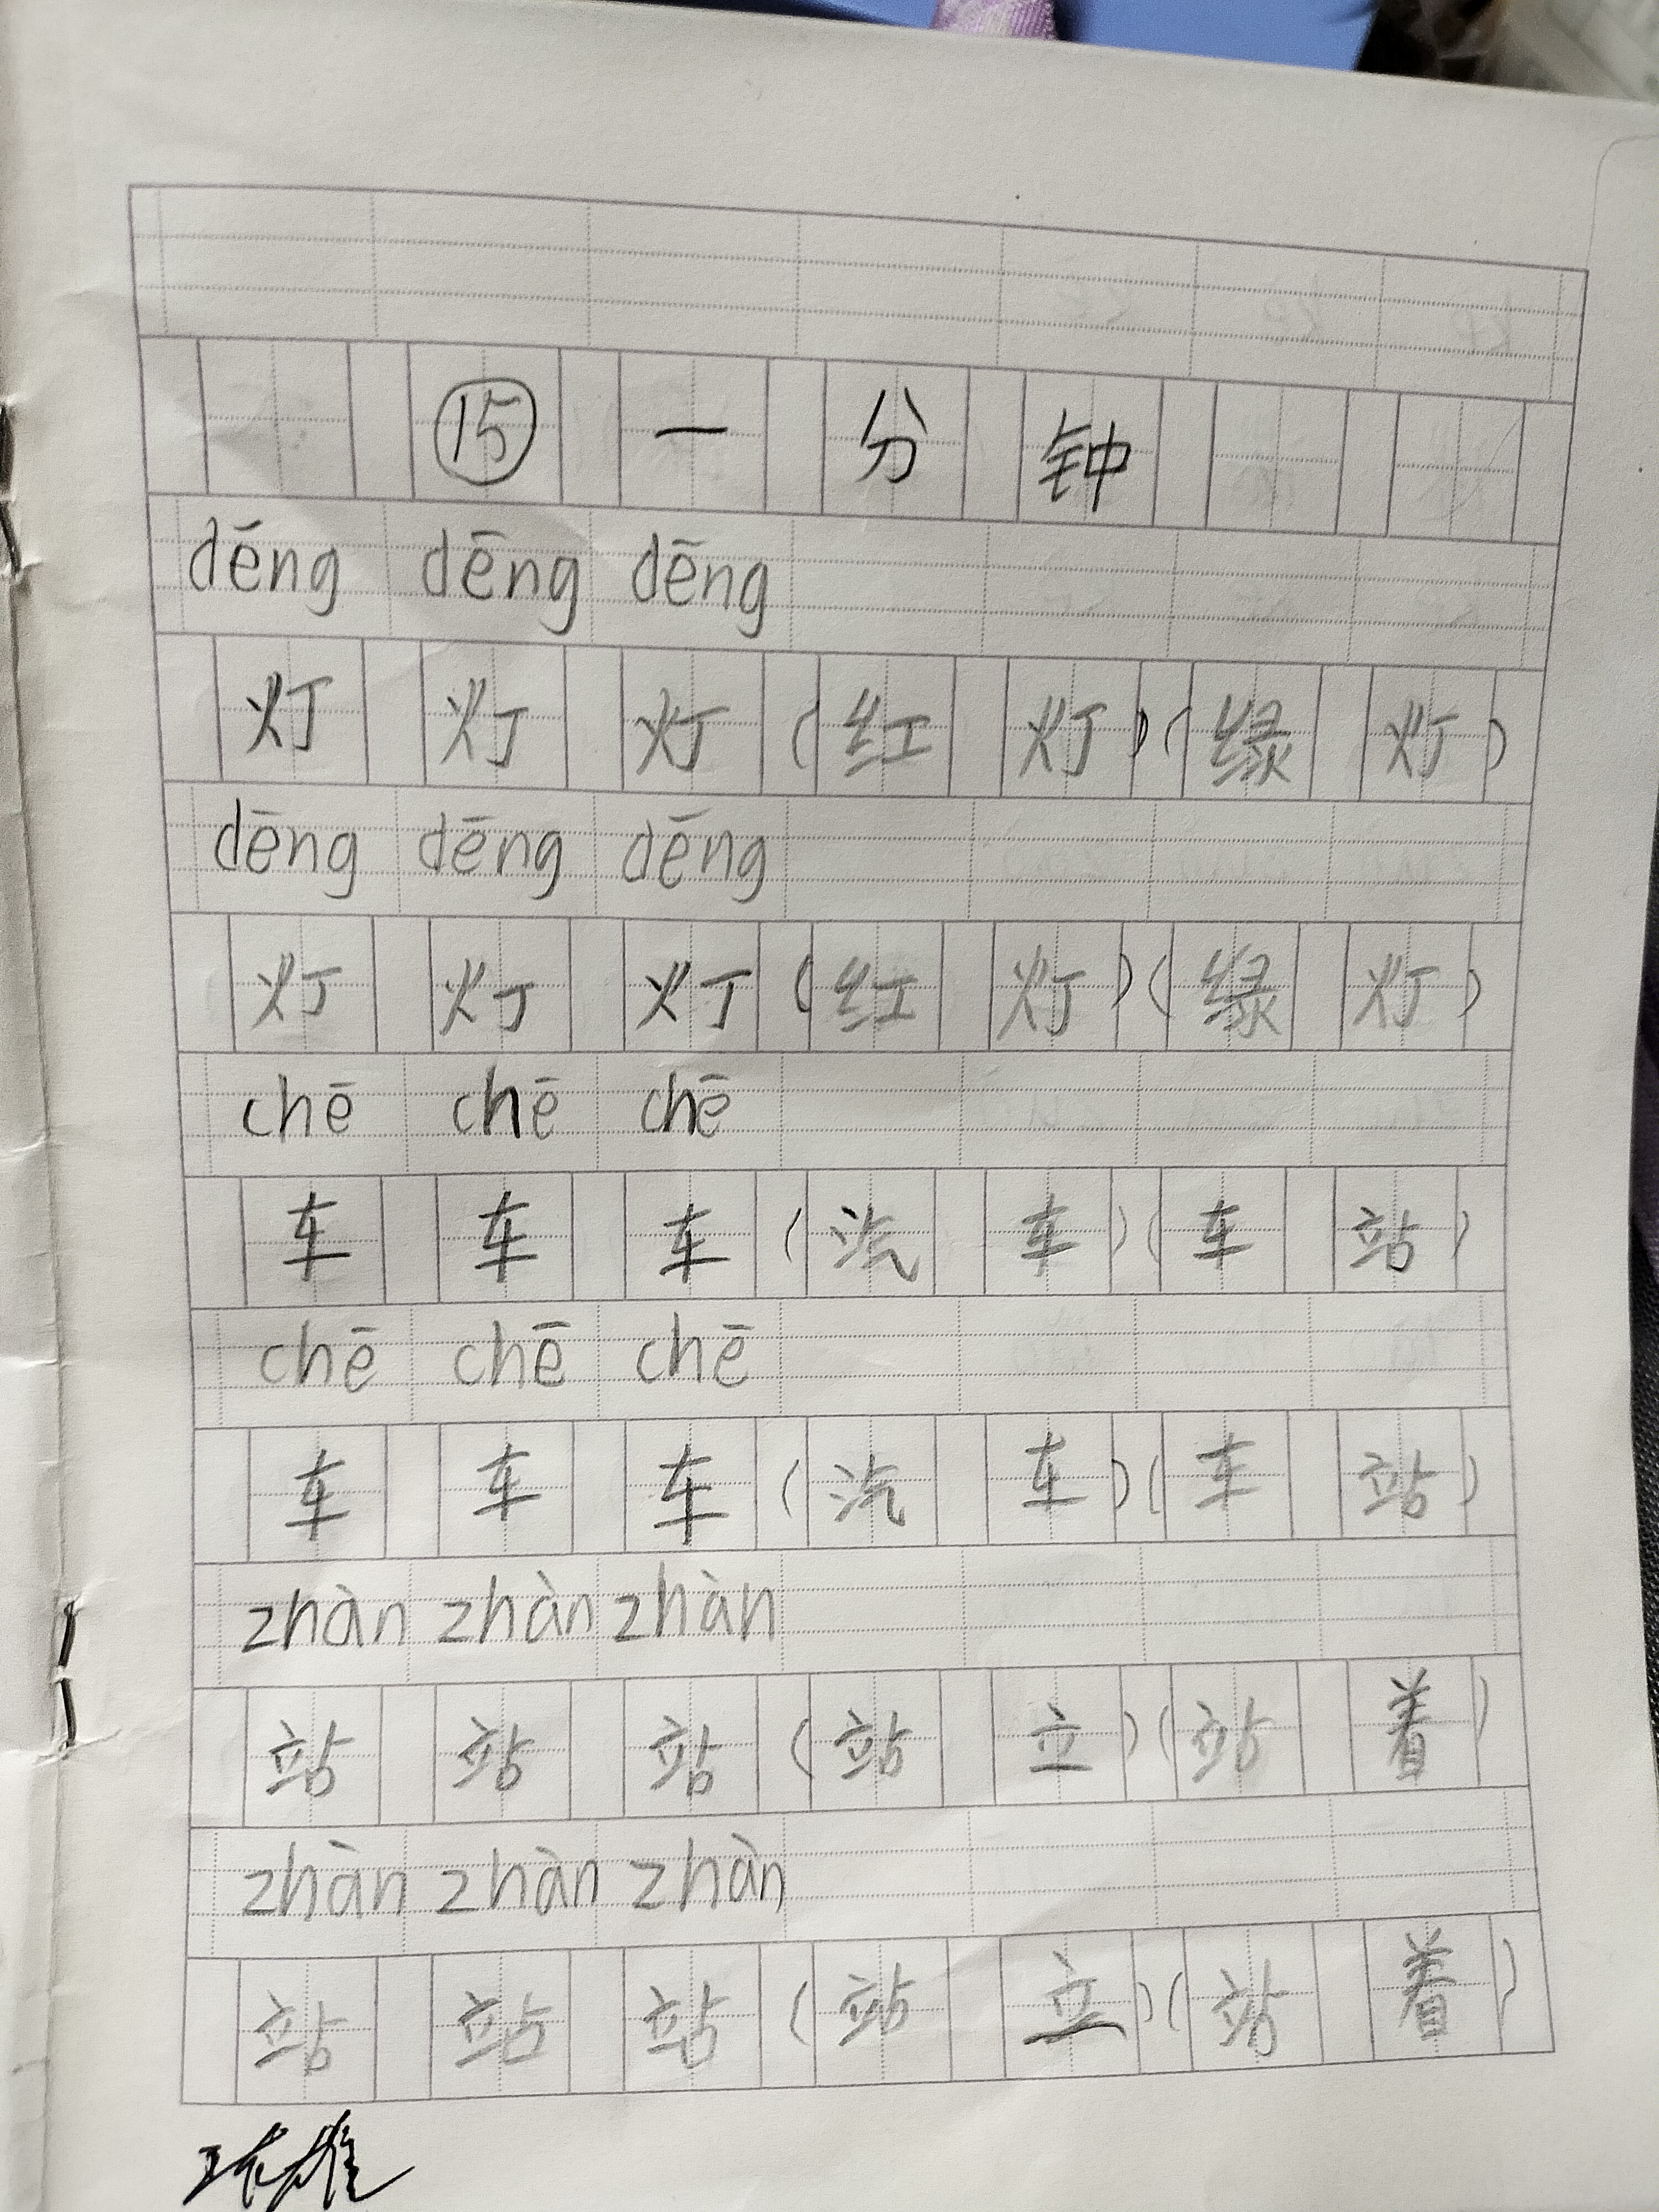 ⑮ 一分钟
dēng dēng dēng
灯 灯 灯 (红灯) (绿灯)
dēng dēng dēng
灯 灯 灯 (红灯) (绿灯)
chē chē chē
车 车 车 (汽车) (车站)
chē chē chē
车 车 车 (汽车) (车站)
zhàn zhàn zhàn
站 站 站 (站立) (站着)
zhàn zhàn zhàn
站 站 站 (站立) (站着)